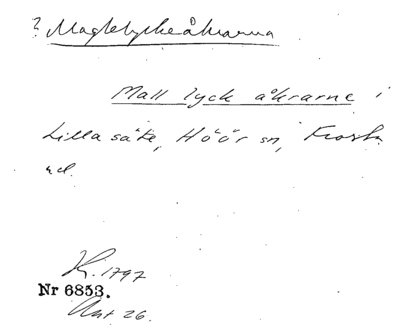 ? Maglelyckeåkrarna
Mall lyck åkrarne i
Lilla säte, Höör sn, Frosta
hd.
K. 1797
Nr 6853.
Akt 26.